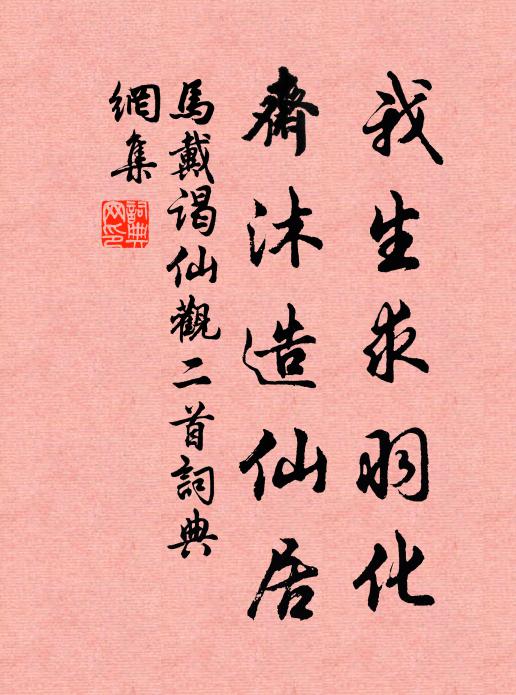 我生求羽化
齋沐造仙居
馬戴謁仙觀二首詞典
網集
詞典
网印